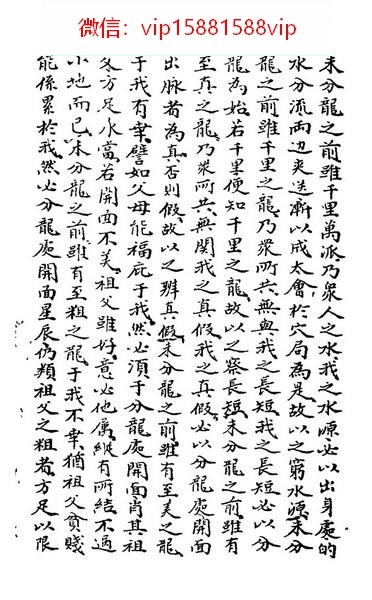 微信：vip15881588vip
未分龍之前雖千里萬派乃衆人之水我之水源必以出身處的
水分流両边夹送漸以成太會於穴局為是故以之窮水源未分
龍之前雖千里之龍乃衆所共無與我之長短我之長短必以分
龍為始若千里便知千里之龍故以之察長短未分龍之前雖有
至真之龍乃衆所共無関我之真假我之真假必以分龍處開面
出脉者為真否則假故以之辨真假未分龍之前雖有至美之龍
于我有幸譬如父母能福庇于我然必須于分龍處開面肖其祖
方足水當若開面不美祖父雖好意必他属縦有所結不過
小地而已未分龍之前雖有至粗之龍于我不幸猶祖父貧賤
能係累於我然必分龍處開面星辰仍類祖父之粗者方足以限